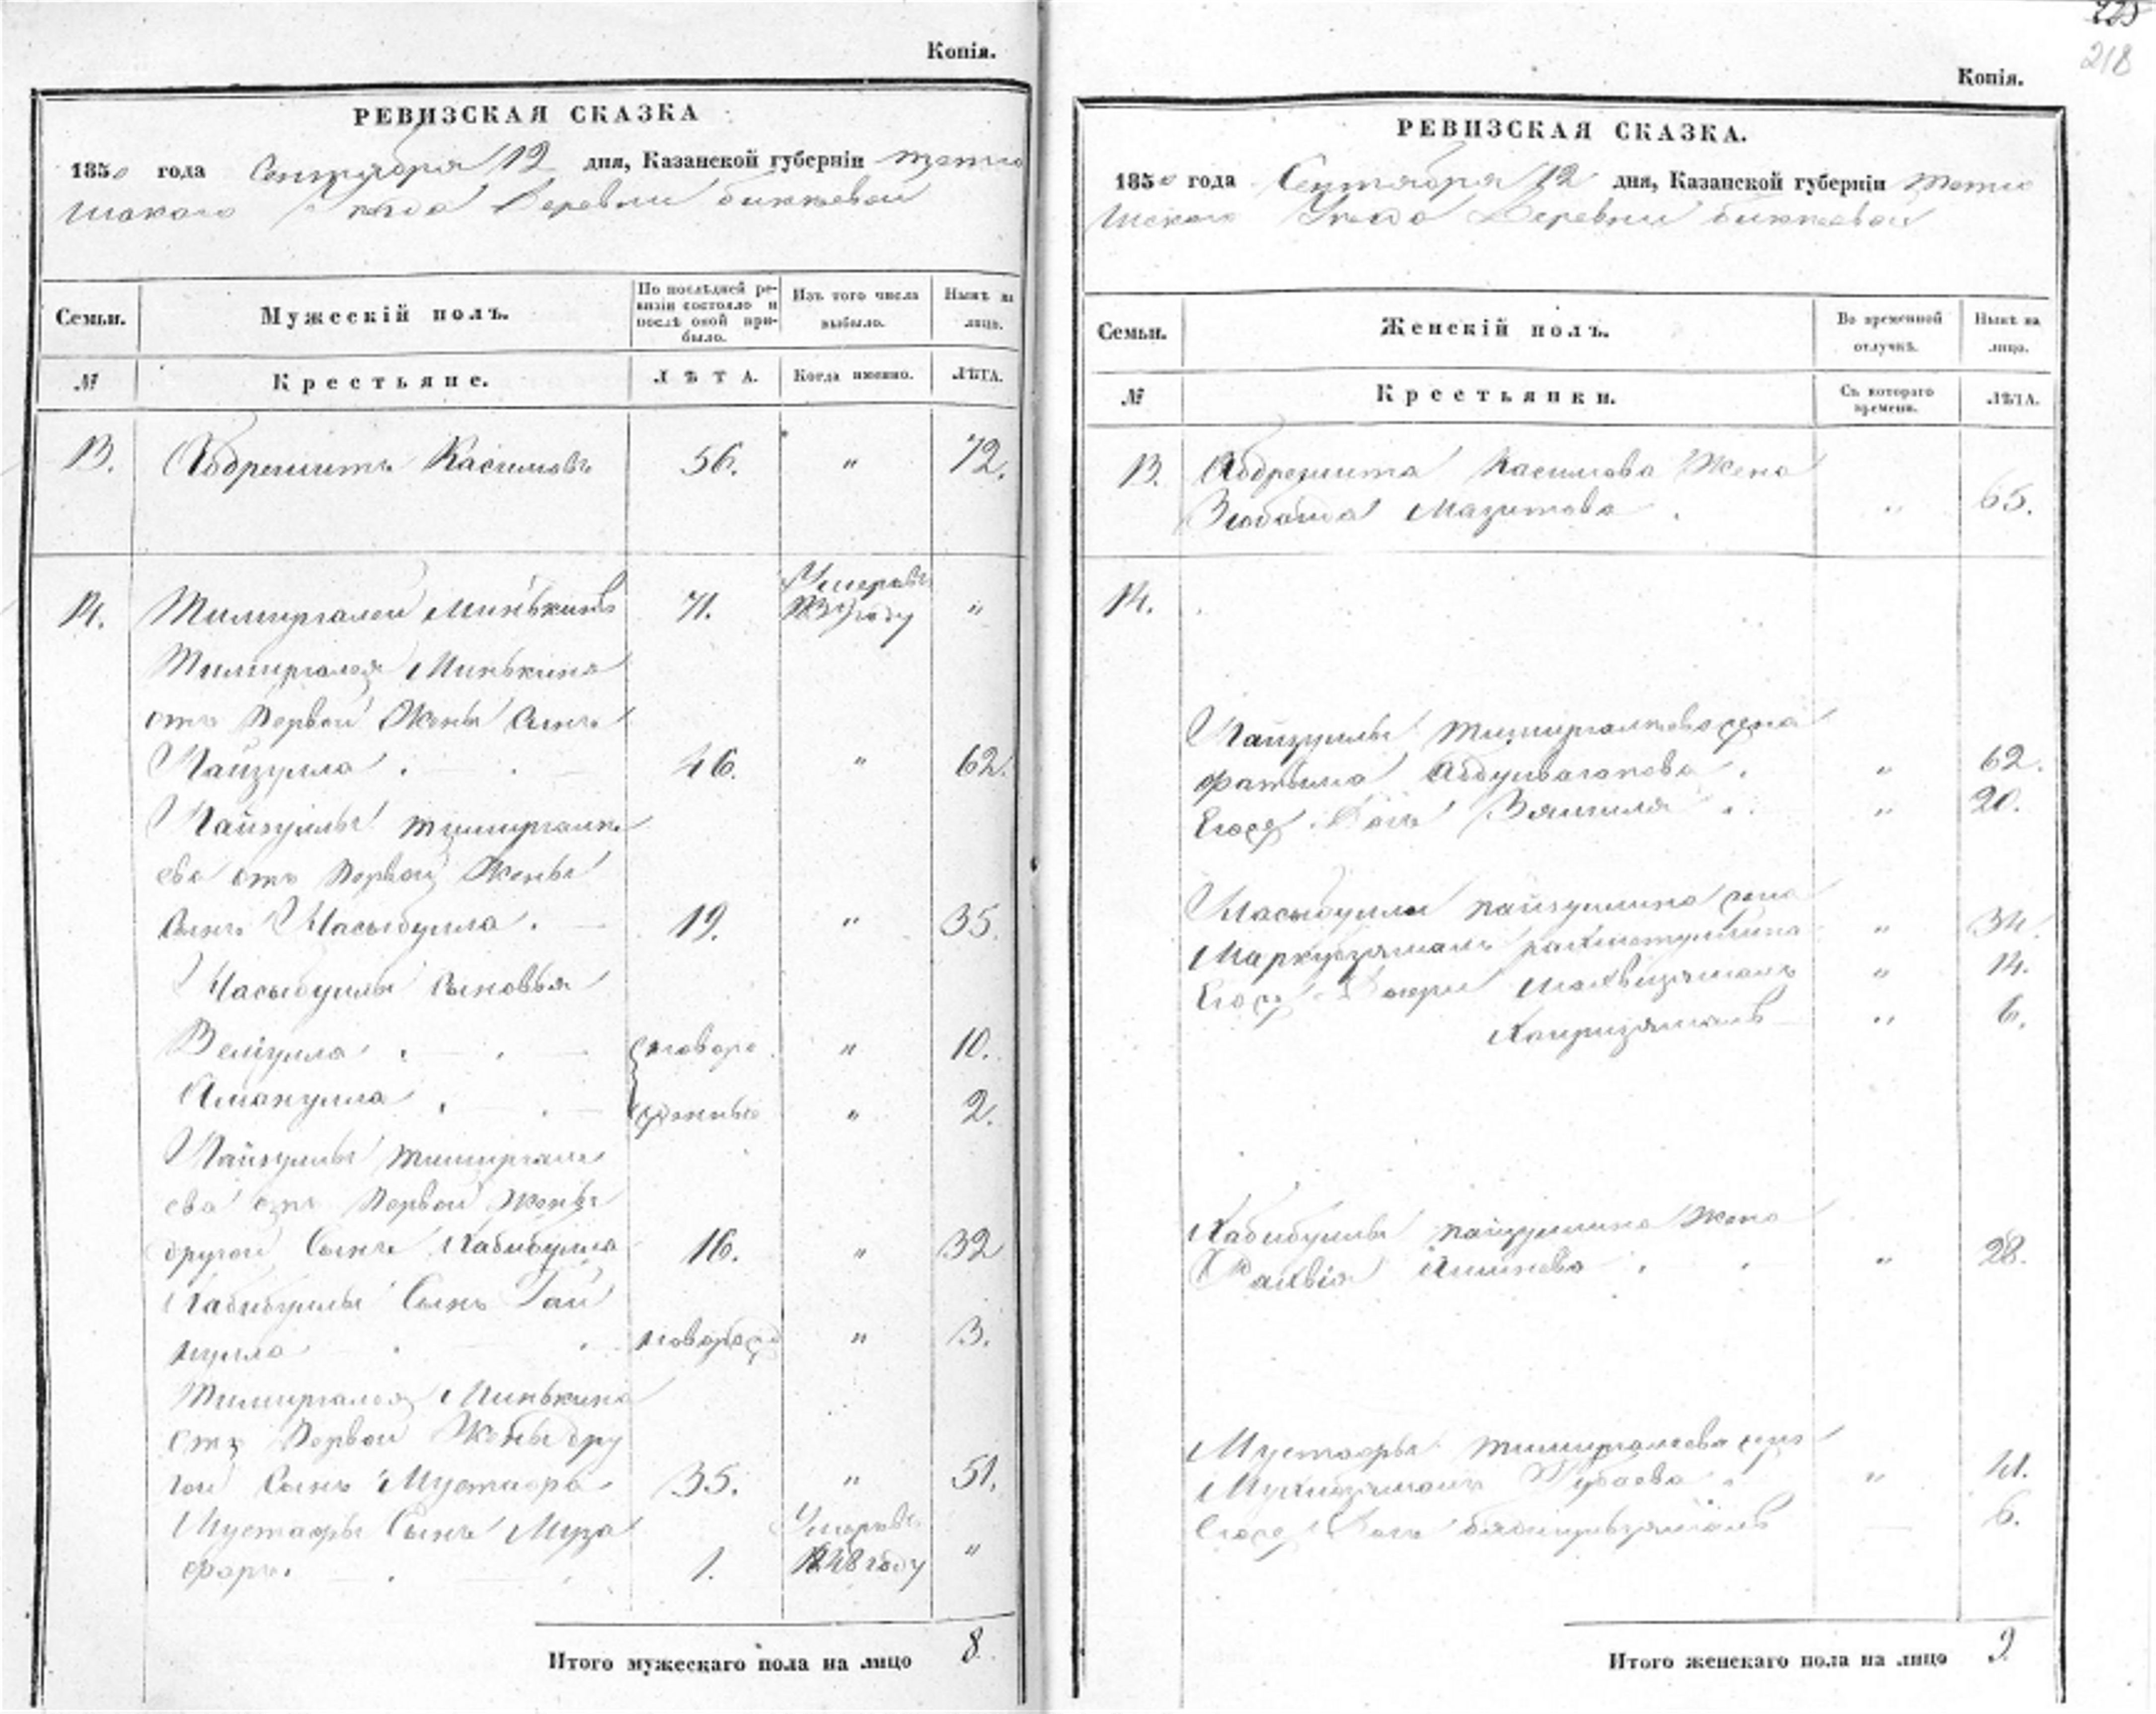 Копія.
РЕВИЗСКАЯ СКАЗКА
1850 года Сентября 12 дня, Казанской губерніи тетю
шскаго уезда Деревни бикеевой
Семьи. Мужескій полъ. По послѣдней ревизіи состояло и послѣ оной прибыло. Изъ того числа выбыло. Нынѣ на лицо.
№ Крестьяне. ЛѢТА. Когда именно. ЛѢТА.
13. Абдрешитъ Касимовъ 56. " 72.
Умеръ въ
14. Тимиргалей Минькинъ 71. году "
Тимиргалея Минькина
отъ Первой Жены Сынъ
Файзулла 46. " 62.
Файзуллы тимиргале
ева отъ Первой Жены
Сынъ Насыбулла 19. " 35.
Насыбуллы Сыновья
Велиулла новоро " 10.
Аманулла жденные " 2.
Файзуллы тимиргале
ева отъ Первой Жены
другой Сынъ Хабибулла 16. " 32
Хабибуллы Сынъ Гай
нулла новорожд " 3.
Тимиргалея Минькина
отъ Первой Жены дру
гой Сынъ Мустафа 35. " 51.
Мустафы Сынъ Муза Умеръ въ
фаръ. 1. 1848 году "
Итого мужескаго пола на лицо 8.
225
218
Копія.
РЕВИЗСКАЯ СКАЗКА.
1850 года Сентября 12 дня, Казанской губерніи тетю
шскаго Уезда Деревни бикеевой
Семьи. Женскій полъ. Во временной отлучкѣ. Нынѣ на лицо.
№ Крестьянки. Съ котораго времени. ЛѢТА.
13. Абдрешита Касимова Жена
Зюбайда Мазитова " 65.
14.
Файзуллы тимиргалеева жена
фатыма Абдулвагапова " 62.
Его Дочь Вямиля " 20.
Насыбуллы файзуллина жена
рахметуллина " 34.
Его Дочери " 14.
" 6.
Хабибуллы файзуллина Жена
" 28.
Мустафы тимиргалеева жена
" 41.
Его Дочь 6.
Итого женскаго пола на лицо 9